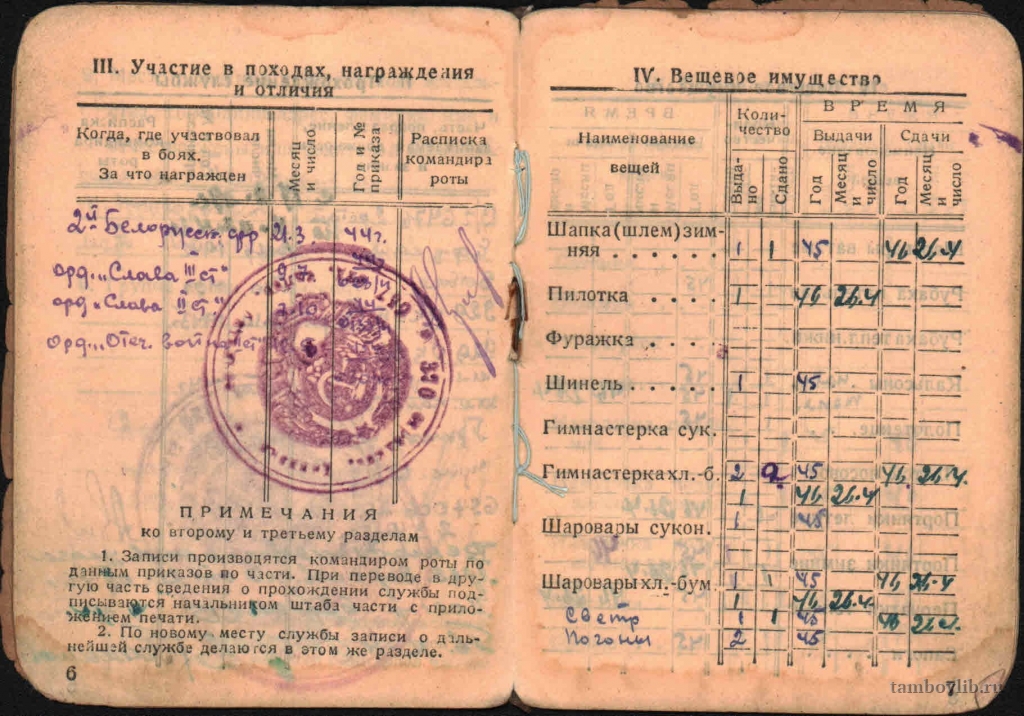 III. Участие в походах, награждения
и отличия
Когда, где участвовал
в боях.
За что награжден
Месяц
и число
Год и №
приказа
Расписка
командира
роты
2й Белорусст. фр. 21.3. 44г.
орд. „Слава III ст"
орд. „Слава II ст."
орд. „Отеч. война
ПРИМЕЧАНИЯ
ко второму и третьему разделам
1. Записи производятся командиром роты по
данным приказов по части. При переводе в дру-
гую часть сведения о прохождении службы под-
писываются начальником штаба части с прило-
жением печати.
2. По новому месту службы записи о даль-
нейшей службе делаются в этом же разделе.
6
IV. Вещевое имущество
Наименование
вещей
Коли-
чество
ВРЕМЯ
Выдачи
Сдачи
Выда-
но
Сдано
Год
Месяц
и
число
Год
Месяц
и
число
Шапка (шлем) зим-
няя . . . . . . 1 1 45 46 26.4
Пилотка . . . . 1 46 26.4
Фуражка . . . .
Шинель . . . . . 1 45
Гимнастерка сук.
Гимнастерка хл.-б. 2 2 45 46 26.4.
1 46 26.4
Шаровары сукон. 1 45
Шаровары хл.-бум. 1 1 45 46 26.4
1 46 26.4.
Светр 1 1 45 46 26.4.
Погоны 2 45
7
tambovlib.ru